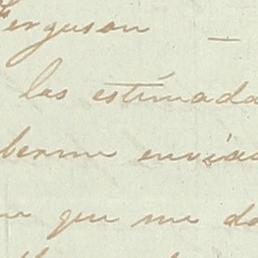 Ferguson —
las estimada
berme enviad
que me da